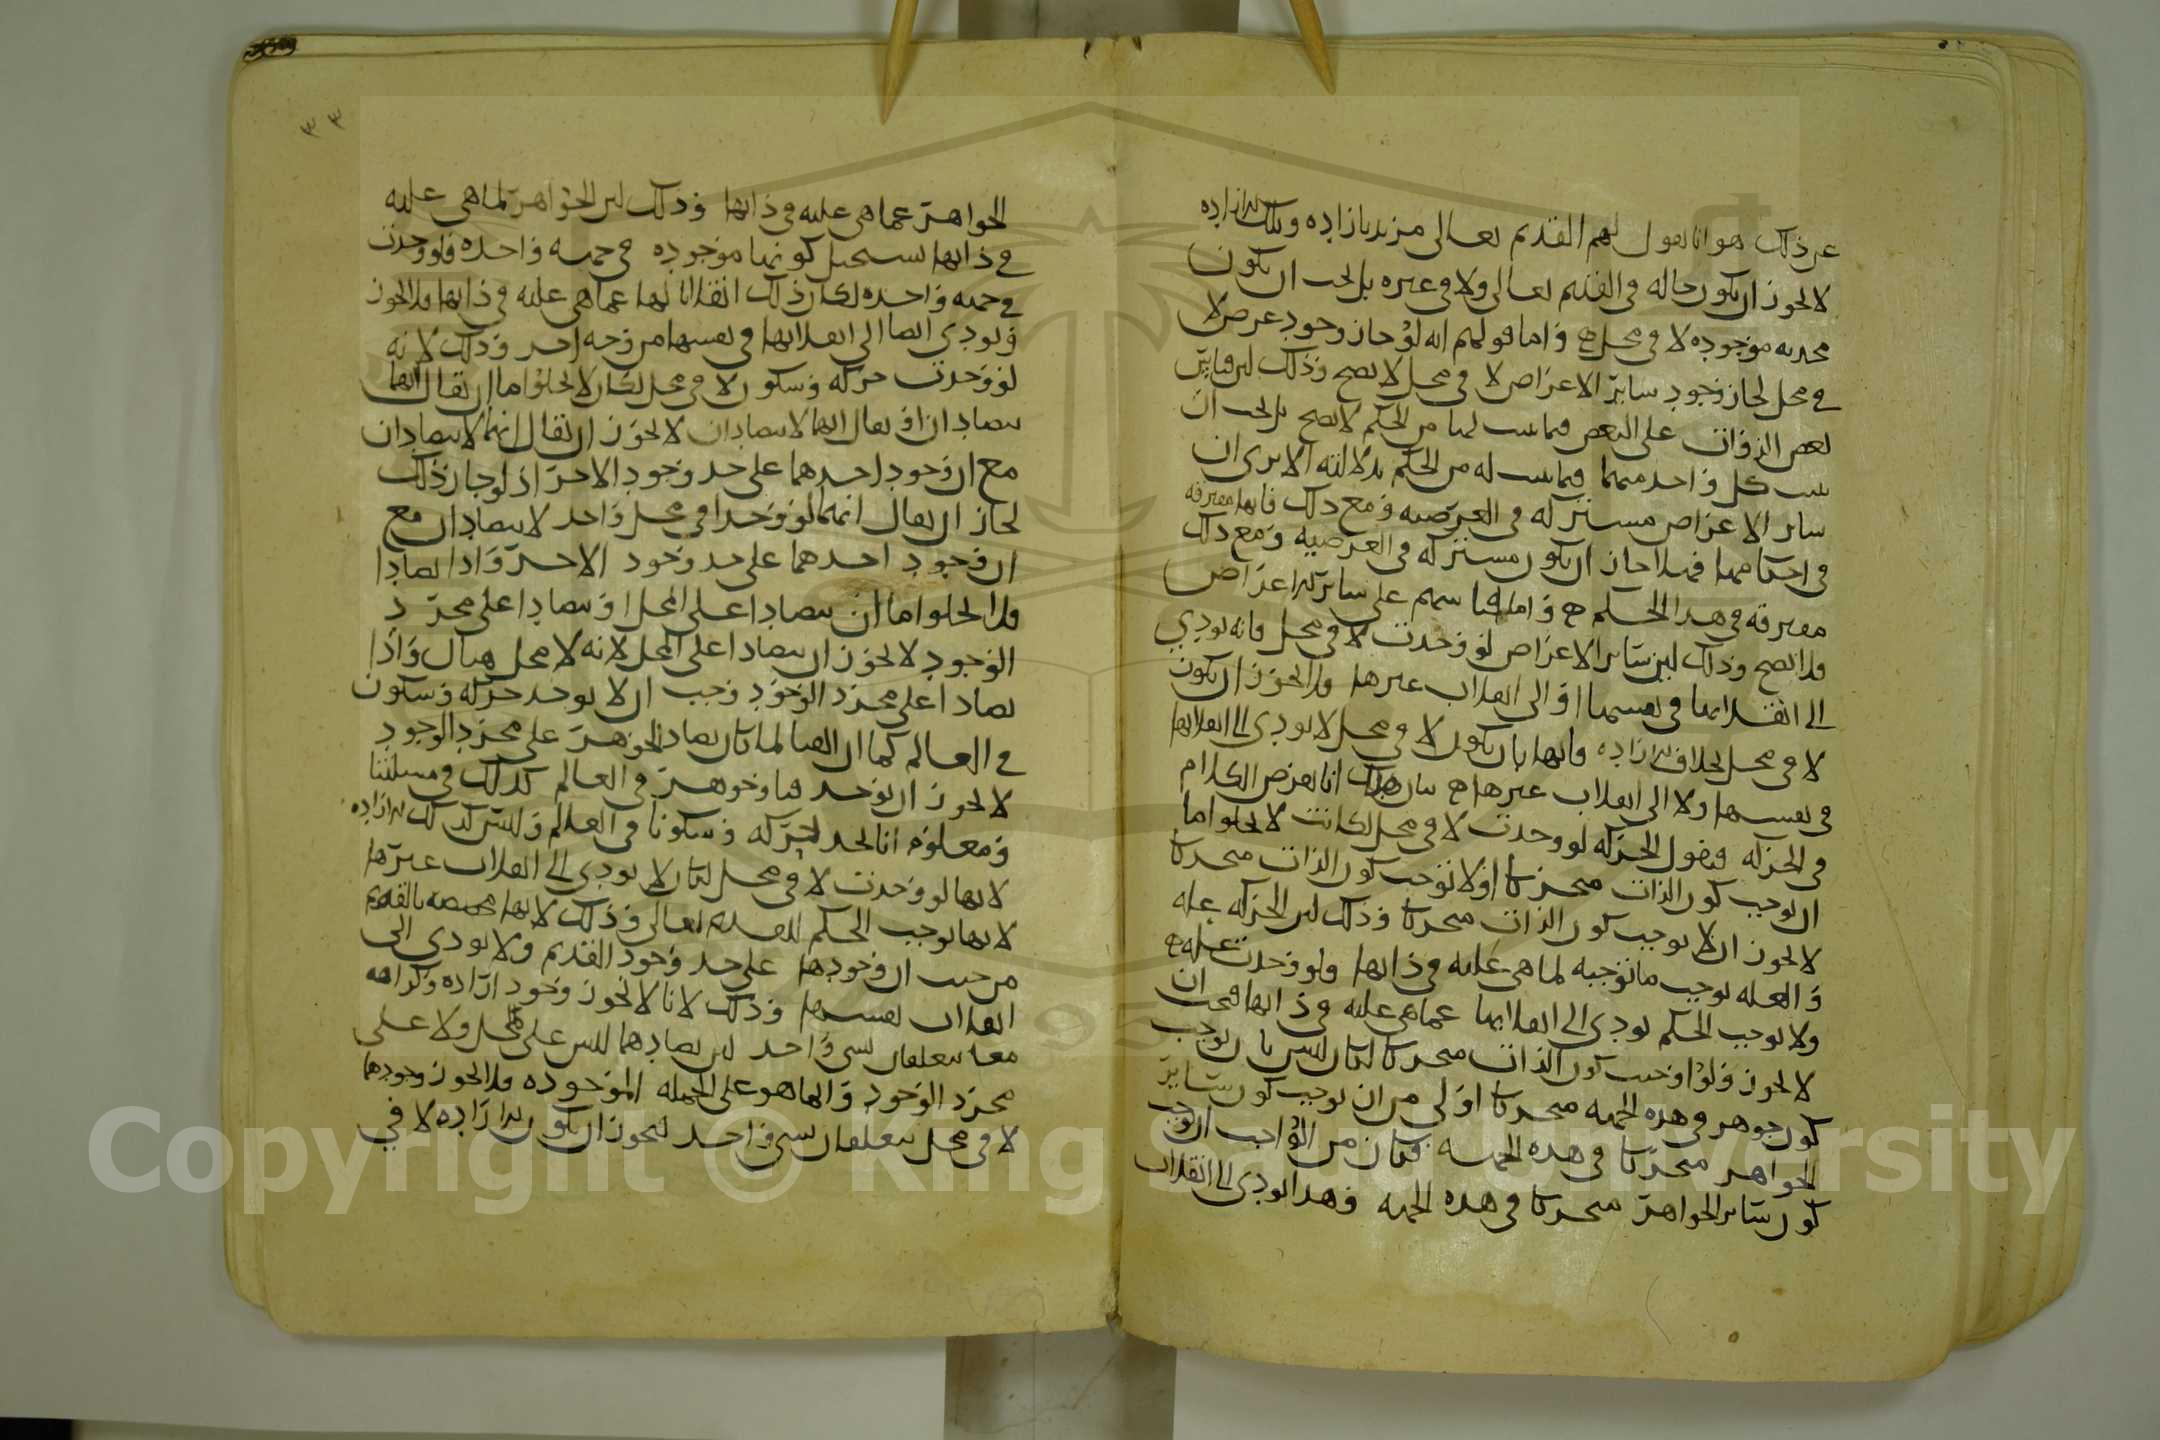 عن ذلك هو انا نقول لهم القديم تعالى مريد بارادة وتلك الارادة
لا يجوز ان يكون حاله في القديم تعالى ولا في غيره بل يجب ان يكون
محدثه موجوده لا في محل واما قولهم انه لو جاز وجود عرض لا
في محل لجاز وجود ساير الاعراض لا في محل لا يصح وذلك لان قياس
بعض الذوات على البعض فيما يثبت لها من الحكم لا يصح بل يجب ان
يثبت كل واحد منهما فيما يثبت له من الحكم بدلالته الا ترى ان
ساير الاعراض مشتركه في العرضيه ومع ذلك فانها مفترقه
في احكامها فهلا جاز ان يكون مشتركه في العرضيه ومع ذلك
مفترقه في هذا الحكم واما قياسهم على ساير الاعراض
فلا يصح وذلك لان ساير الاعراض لو وجدت لا في محل فانه يودي
الى انقلابها في نفسها او الى انقلاب غيرها فلا يجوز ان يكون
لا في محل بخلاف الارادة فانها بان يكون لا في محل لا يودي الى انقلابها
في نفسها ولا الى انقلاب غيرها بيان ذلك انا نفرض الكلام
في الحركه فنقول الحركه لو وجدت لا في محل لكانت لا يخلو اما
ان يوجب كون الذات متحركا او لا توجب كون الذات متحركا
لا يجوز ان لا يوجب كون الذات متحركا وذلك لان الحركه عله
والعله توجب ما توجبه لما هي عليه في ذاتها ولو وجدت عله
ولا توجب الحكم يودي الى انقلابها عما هي عليه في ذاتها فيجب ان
لا يجوز ولو اوجبت كون الذات متحركا لكان ليس بان يوجب
كون جوهر في هذه الجهه متحركا اولى من ان يوجب كون ساير
الجواهر متحركا في هذه الجهه فكان من الواجب ان يوجب
كون ساير الجواهر متحركا في هذه الجهه وهذا يودي الى انقلاب
٣٣
الجواهر عما هي عليه في ذاتها وذلك لان الجواهر لما هي عليه
في ذاتها يستحيل كونها موجوده في جهه واحده فلو وجدت
في جهه واحده لكان ذلك انقلابا لها عما هي عليه في ذاتها فلا يجوز
ويودي ايضا الى انقلابها في نفسها من وجه اخر وذلك لانه
لو وجدت حركه وسكون لا في محل لكان لا يخلو اما ان يقال انهما
يتضادان او يقال انهما لا يتضادان لا يجوز ان يقال انهما لا يتضادان
مع ان وجود احدهما على حد وجود الاخر اذ لو جاز ذلك
لجاز ان يقال انهما لو وجدا في محل واحد لا يتضادان مع
ان وجود احدهما على حد وجود الاخر واذا تضادا
فلا يخلو اما ان يتضادا على المحل او يتضادا على مجرد
الوجود لا يجوز ان يتضادا على المحل لانه لا محل هناك واذا
تضادا على مجرد الوجود وجب ان لا يوجد حركه وسكون
في العالم كما ان الفنا لما كان يضاد الجوهر على مجرد الوجود
لا يجوز ان يوجد فنا وجوهر في العالم كذلك في مسلتنا
ومعلوم انا نجد حركه وسكونا في العالم وليس كذلك الارادة
لانها لو وجدت لا في محل لكان لا يودي الى انقلاب غيرها
لانها توجب الحكم للقديم تعالى وذلك لانها مختصه بالقديم
من حيث ان وجودها على حد وجود القديم ولا يودي الى
انقلاب نفسها وذلك لانا لا نجوز وجود ارادة وكراهه
معا يتعلقان بشي واحد لان تضادهما ليس على المحل ولا على
مجرد الوجود وانما هو على الجمله الموجوده فلا يجوز وجودهما
لا في محل يتعلقان بشي واحد فيجوز ان يكون الارادة لا في